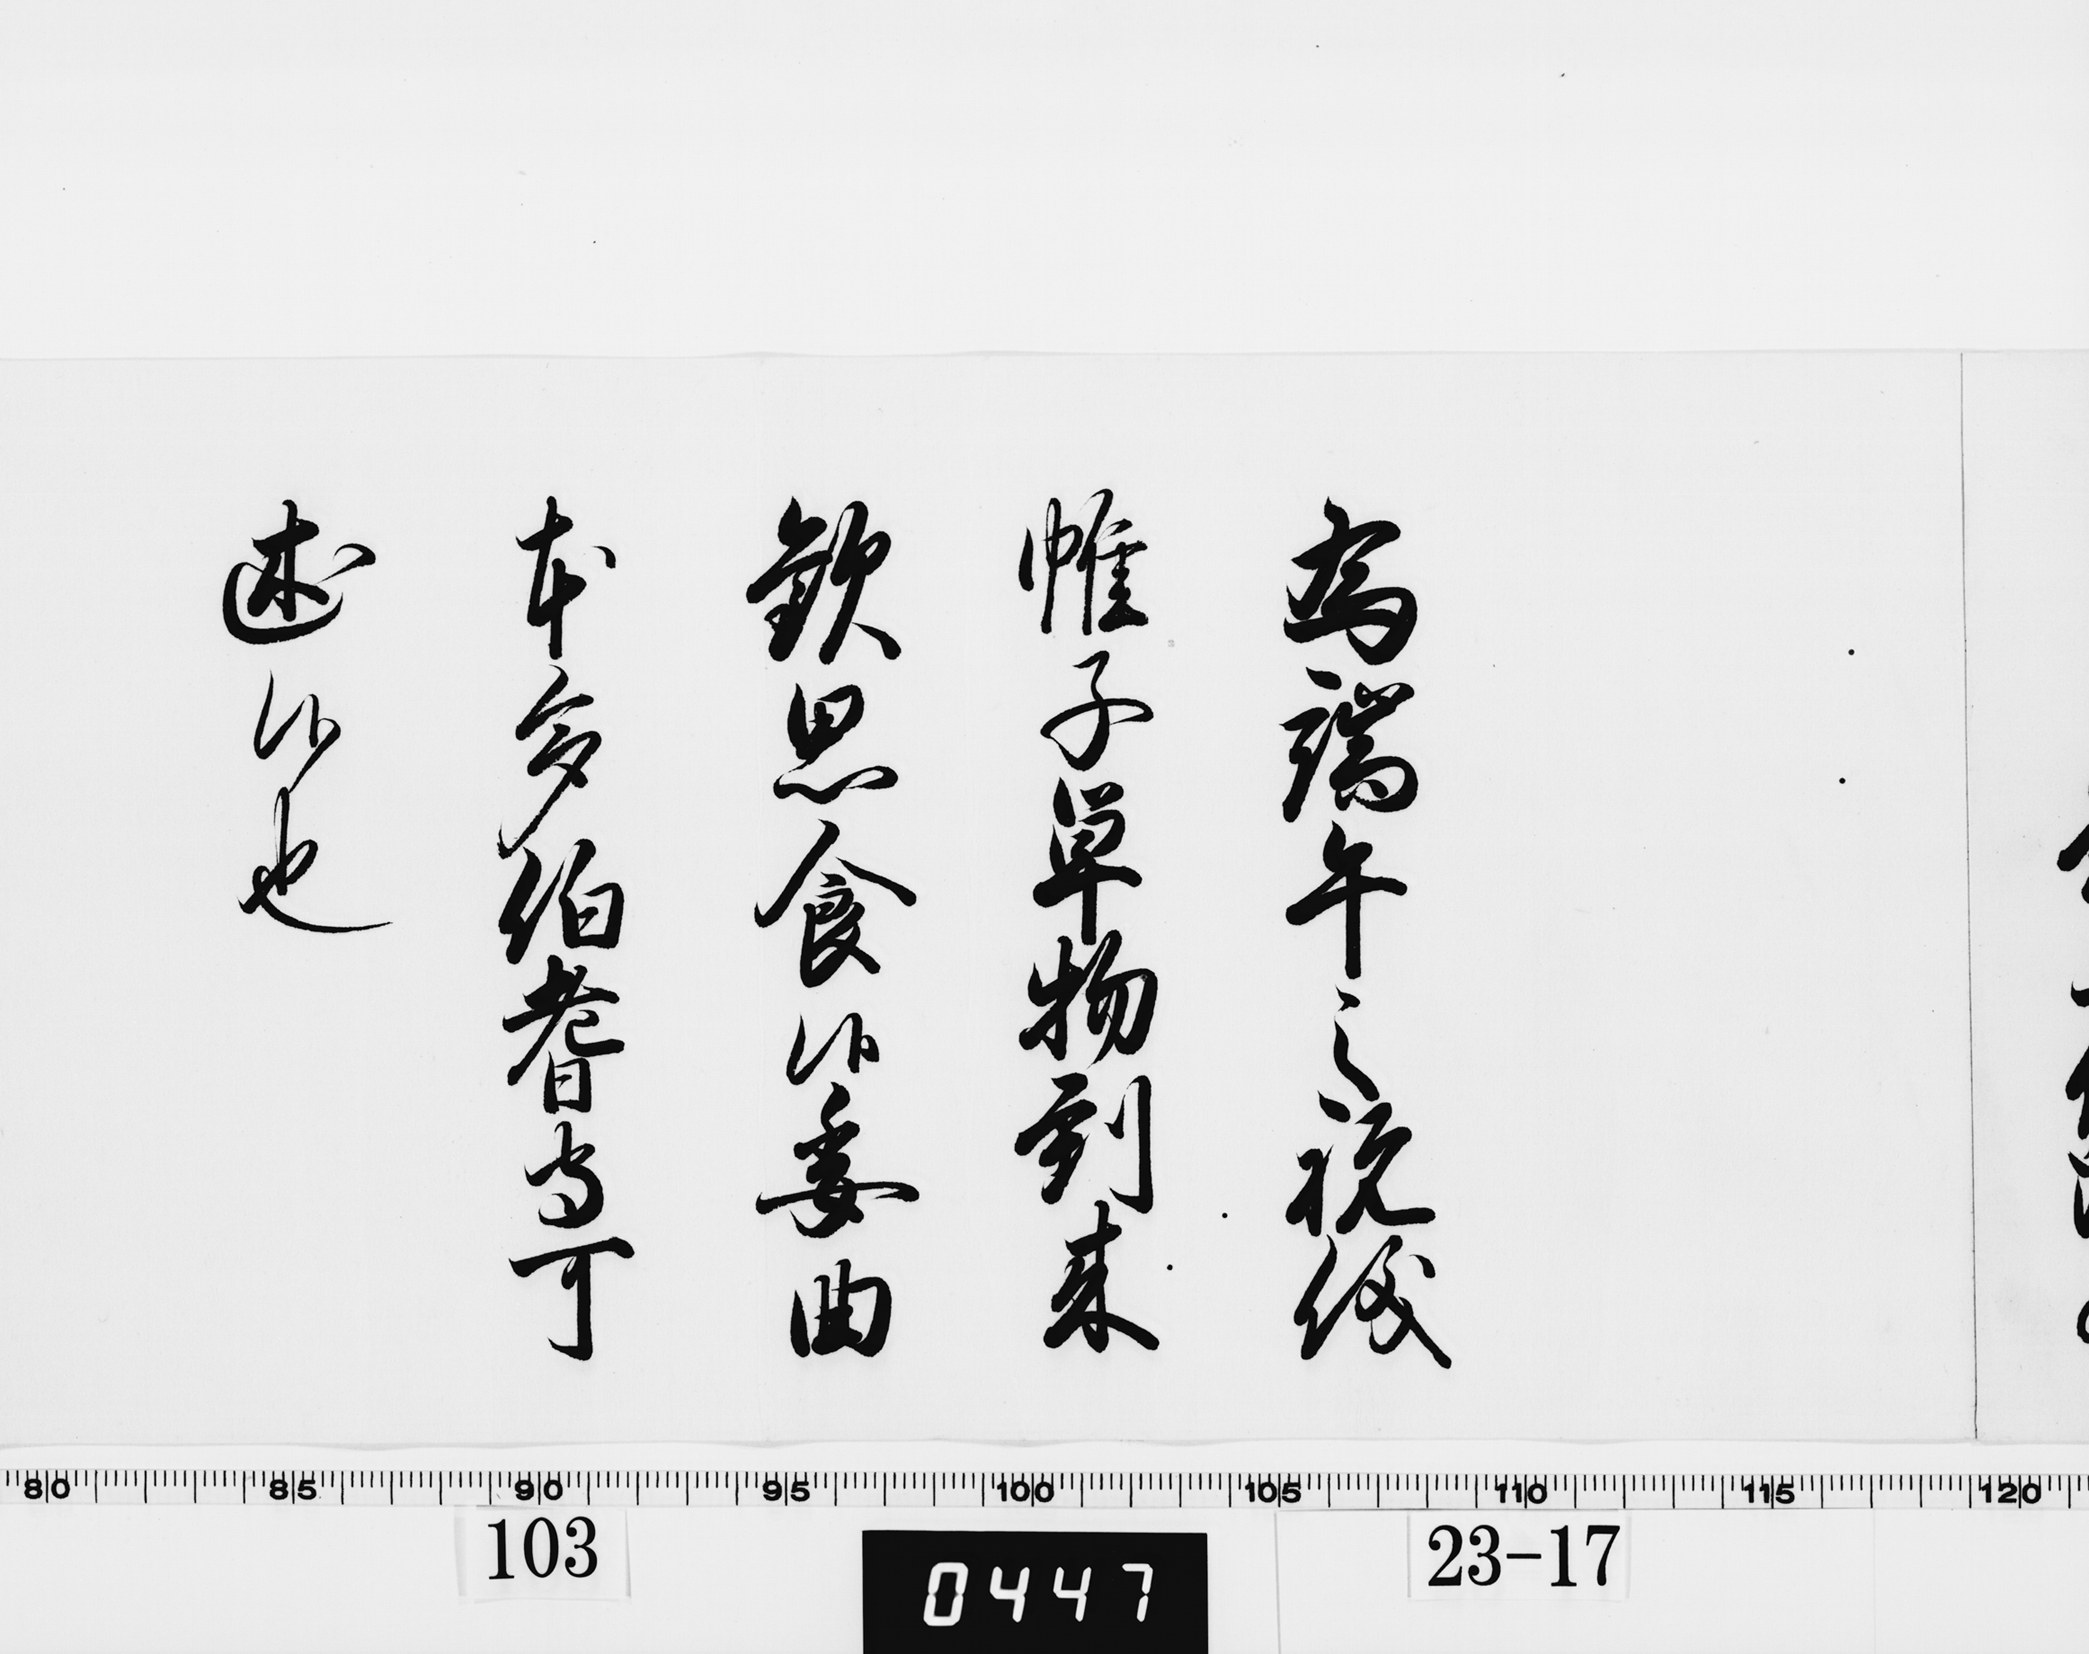 為端午之祝儀
帷子単物到来
歓思食候委曲
本多伯耆守可
述候也
80 85 90 95 100 105 110 115 120
103
0447
23-17